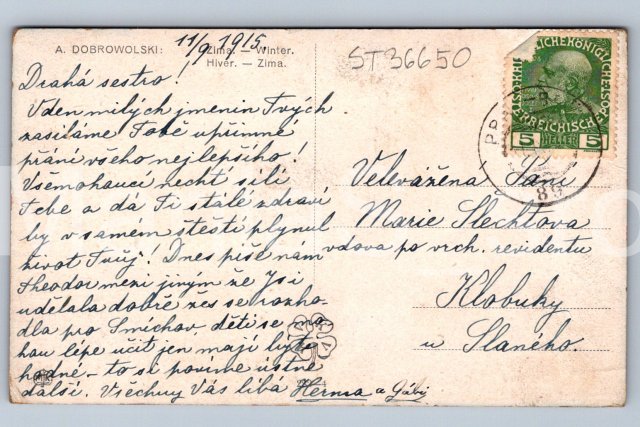 A. DOBROWOLSKI:
11/9 1915.
Zima. — Winter.
Hiver. — Zima.
ST36650
Drahá sestro!
V den milých jmenin Tvých
zasíláme Tobě upřímné
přání všeho nejlepšího!
Všemohoucí nechť sílí
Tebe a dá Ti stálé zdraví
by v samém štěstí plynul
život Tvůj! Dnes píše nám
Theodor mezi jiným že jsi
udělala dobře žes se rozho-
dla pro Smíchov, děti se mo-
hou lépe učit jen mají byte
hodné — to si povíme ústně
další. Všechny Vás líbá Herma a Gábi
5 HELLER 5
PR
8
Velevážená Paní
Marie Slechtova
vdova po vrch. revidentu
Klobuky
u Slaného.